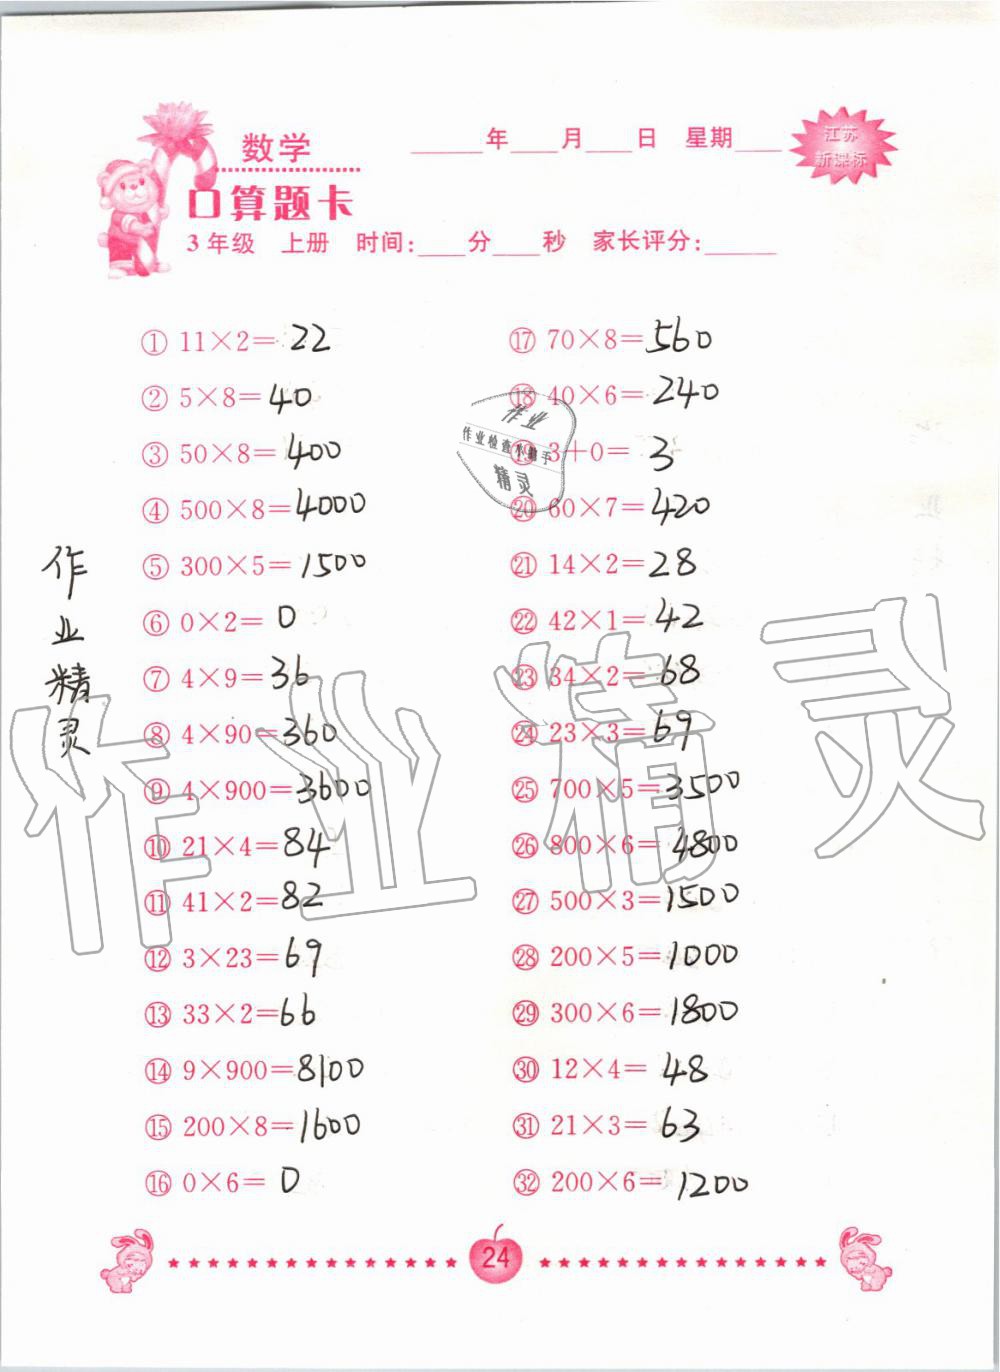 数学
____年____月____日 星期____
江苏
新课标
口算题卡
3年级 上册 时间:____分____秒 家长评分:______
① 11×2=22
② 5×8=40
③ 50×8=400
④ 500×8=4000
⑤ 300×5=1500
⑥ 0×2=0
⑦ 4×9=36
⑧ 4×90=360
⑨ 4×900=3600
⑩ 21×4=84
⑪ 41×2=82
⑫ 3×23=69
⑬ 33×2=66
⑭ 9×900=8100
⑮ 200×8=1600
⑯ 0×6=0
⑰ 70×8=560
⑱ 40×6=240
⑲ 3+0=3
⑳ 60×7=420
㉑ 14×2=28
㉒ 42×1=42
㉓ 34×2=68
㉔ 23×3=69
㉕ 700×5=3500
㉖ 800×6=4800
㉗ 500×3=1500
㉘ 200×5=1000
㉙ 300×6=1800
㉚ 12×4=48
㉛ 21×3=63
㉜ 200×6=1200
作业精灵
作业
作业检查小助手
精灵
作业精灵
24